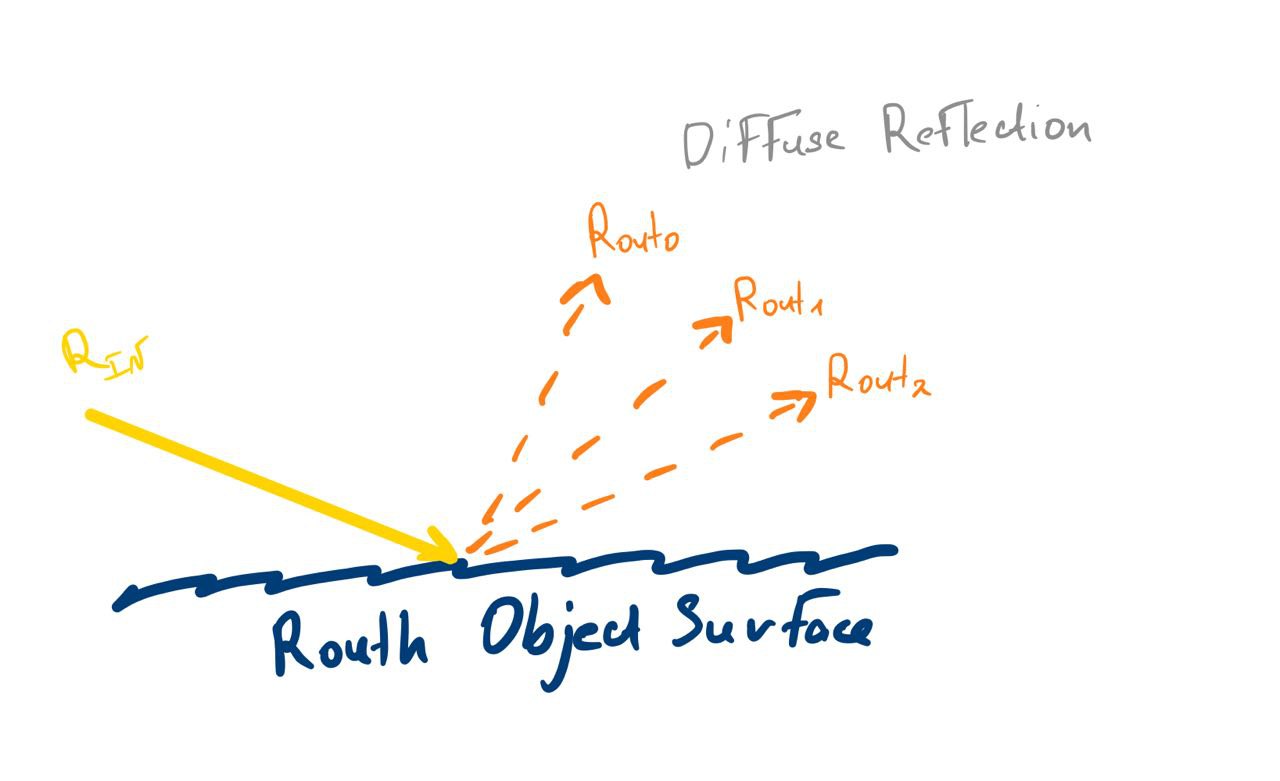 Diffuse Reflection
Rout0
Rout1
RIN
Rout2
Routh Object Surface